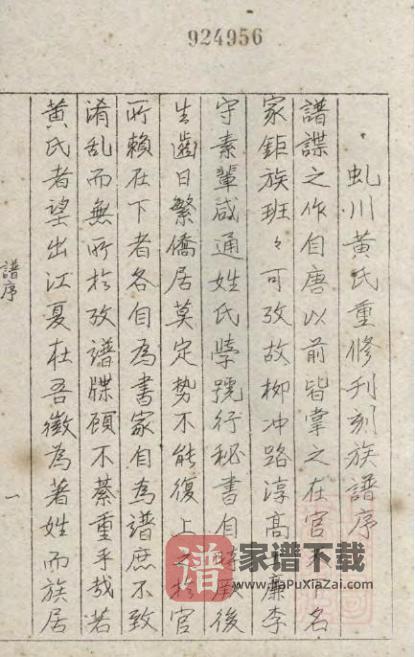 924956
虬川黃氏重修刊刻族譜序
譜諜之作自唐以前皆掌之在官名
家鉅族班々可攷故柳冲路淳高廉李
守素輩咸通姓氏學號行秘書自時厥後
生齒日繁僑居莫定勢不能復上之於官
所賴在下者各自為書家自為譜庶不致
淆乱而無所於攷譜牒顧不綦重乎哉若
黃氏者望出江夏在吾徽為著姓而族居
譜序
一
譜
家谱下载
www.JiaPuXiaZai.com